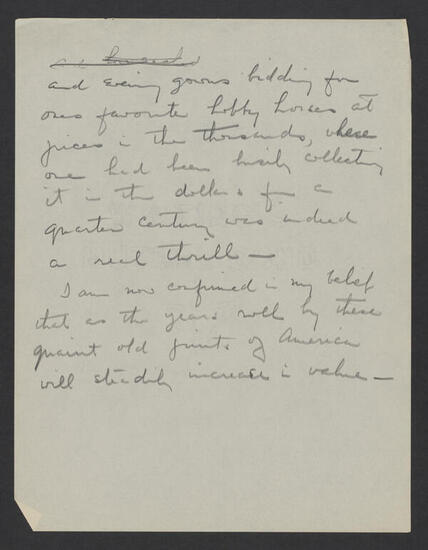 and evening gowns bidding for
ones favorite hobby horses at
prices in the thousands, where
one had been busily collecting
it in the dollars for a
quarter century was indeed
a real thrill —
I am now confirmed in my belief
that as the years roll by these
quaint old prints of America
will steadily increase in value —